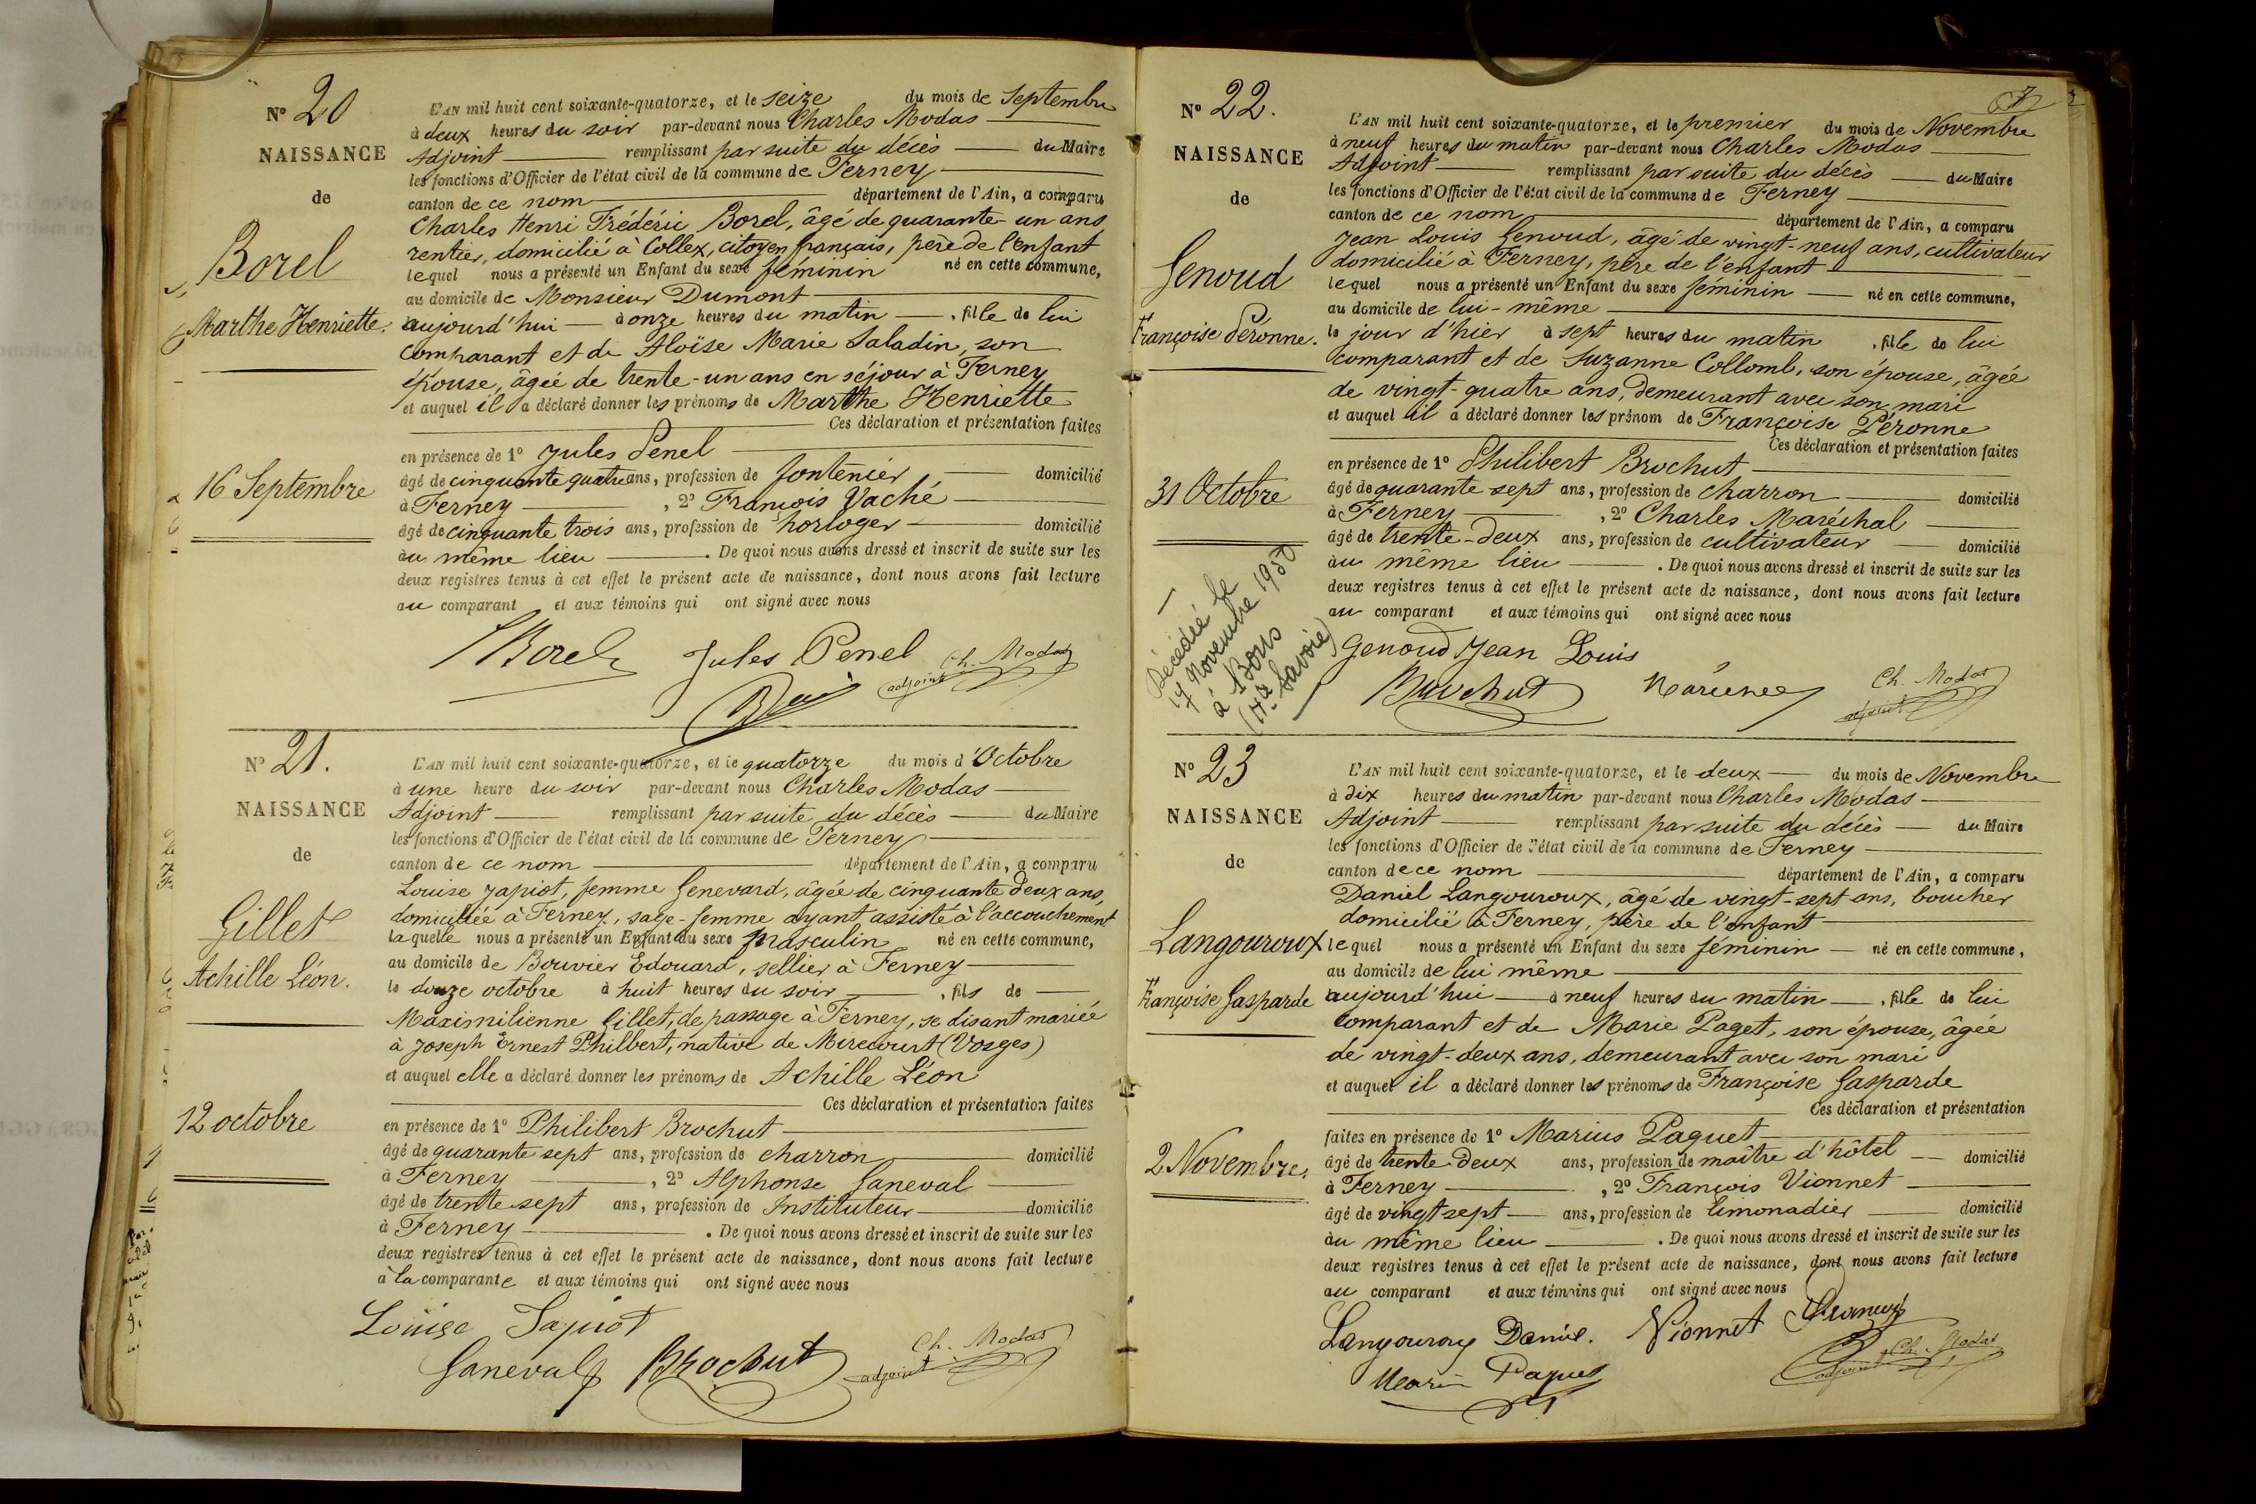 N° 20
NAISSANCE
de
Borel
Marthe Henriette.
16 Septembre
L'AN mil huit cent soixante-quatorze, et le seize du mois de Septembre
à deux heures du soir par-devant nous Charles Modas
Adjoint remplissant par suite du décès du Maire
les fonctions d'Officier de l'état civil de la commune de Ferney
canton de ce nom département de l'Ain, a comparu
Charles Henri Frédéric Borel, âgé de quarante-un ans
rentier, domicilié à Collex, citoyen français, père de l'enfant
lequel nous a présenté un Enfant du sexe féminin né en cette commune,
au domicile de Monsieur Dumont
aujourd'hui à onze heures du matin , fille de lui
comparant et de Aloïse Marie Saladin, son
épouse, âgée de trente-un ans en séjour à Ferney
et auquel il a déclaré donner les prénoms de Marthe Henriette
Ces déclaration et présentation faites
en présence de 1° Jules Penel
âgé de cinquante quatre ans, profession de fontenier domicilié
à Ferney , 2° François Vaché
âgé de cinquante trois ans, profession de horloger domicilié
au même lieu . De quoi nous avons dressé et inscrit de suite sur les
deux registres tenus à cet effet le présent acte de naissance, dont nous avons fait lecture
au comparant et aux témoins qui ont signé avec nous
Borel Jules Penel Ch. Modas
adjoint
N° 21.
NAISSANCE
de
Gillet
Achille Léon.
12 octobre
L'AN mil huit cent soixante-quatorze, et le quatorze du mois d'Octobre
à une heure du soir par-devant nous Charles Modas
Adjoint remplissant par suite du décès du Maire
les fonctions d'Officier de l'état civil de la commune de Ferney
canton de ce nom département de l'Ain, a comparu
Louise Japiot, femme Genevard, âgée de cinquante deux ans,
domiciliée à Ferney, sage-femme ayant assisté à l'accouchement
laquelle nous a présenté un Enfant du sexe masculin né en cette commune,
au domicile de Bouvier Edouard, sellier à Ferney
le douze octobre à huit heures du soir , fils de
Maximilienne Gillet, de passage à Ferney, se disant mariée
à Joseph Ernest Philbert, native de Mirecourt (Vosges)
et auquel elle a déclaré donner les prénoms de Achille Léon
Ces déclaration et présentation faites
en présence de 1° Philibert Brochut
âgé de quarante sept ans, profession de charron domicilié
à Ferney , 2° Alphonse Ganeval
âgé de trente sept ans, profession de Instituteur domicilié
à Ferney . De quoi nous avons dressé et inscrit de suite sur les
deux registres tenus à cet effet le présent acte de naissance, dont nous avons fait lecture
à la comparante et aux témoins qui ont signé avec nous
Louise Japiot
Ganeval Brochut Ch. Modas
adjoint
N° 22.
NAISSANCE
de
Genoud
Françoise Péronne.
31 Octobre
Décédée le
17 Novembre 1950
à Bons
(Hte Savoie)
L'AN mil huit cent soixante-quatorze, et le premier du mois de Novembre
à neuf heures du matin par-devant nous Charles Modas
Adjoint remplissant par suite du décès du Maire
les fonctions d'Officier de l'état civil de la commune de Ferney
canton de ce nom département de l'Ain, a comparu
Jean Louis Genoud, âgé de vingt-neuf ans, cultivateur
domicilié à Ferney, père de l'enfant
lequel nous a présenté un Enfant du sexe féminin né en cette commune,
au domicile de lui-même
le jour d'hier à sept heures du matin , fille de lui
comparant et de Suzanne Collomb, son épouse, âgée
de vingt-quatre ans, demeurant avec son mari
et auquel il a déclaré donner les prénom de Françoise Péronne
Ces déclaration et présentation faites
en présence de 1° Philibert Brochut
âgé de quarante sept ans, profession de charron domicilié
à Ferney , 2° Charles Maréchal
âgé de trente-deux ans, profession de cultivateur domicilié
au même lieu . De quoi nous avons dressé et inscrit de suite sur les
deux registres tenus à cet effet le présent acte de naissance, dont nous avons fait lecture
au comparant et aux témoins qui ont signé avec nous
Genoud Jean Louis
Brochut Ch. Modas
adjoint
N° 23
NAISSANCE
de
Langouroux
Françoise Gasparde
2 Novembre.
L'AN mil huit cent soixante-quatorze, et le deux du mois de Novembre
à dix heures du matin par-devant nous Charles Modas
Adjoint remplissant par suite du décès du Maire
les fonctions d'Officier de l'état civil de la commune de Ferney
canton de ce nom département de l'Ain, a comparu
Daniel Langouroux, âgé de vingt-sept ans, boucher
domicilié à Ferney, père de l'enfant
lequel nous a présenté un Enfant du sexe féminin né en cette commune,
au domicile de lui même
aujourd'hui à neuf heures du matin , fille de lui
comparant et de Marie Paget, son épouse, âgée
de vingt-deux ans, demeurant avec son mari
et auquel il a déclaré donner les prénoms de Françoise Gasparde
Ces déclaration et présentation
faites en présence de 1° Marius Paquet
âgé de trente deux ans, profession de maître d'hôtel domicilié
à Ferney , 2° François Vionnet
âgé de vingt sept ans, profession de limonadier domicilié
au même lieu . De quoi nous avons dressé et inscrit de suite sur les
deux registres tenus à cet effet le présent acte de naissance, dont nous avons fait lecture
au comparant et aux témoins qui ont signé avec nous
Langouroux Daniel. Vionnet François
Paquet Ch. Modas
adjoint